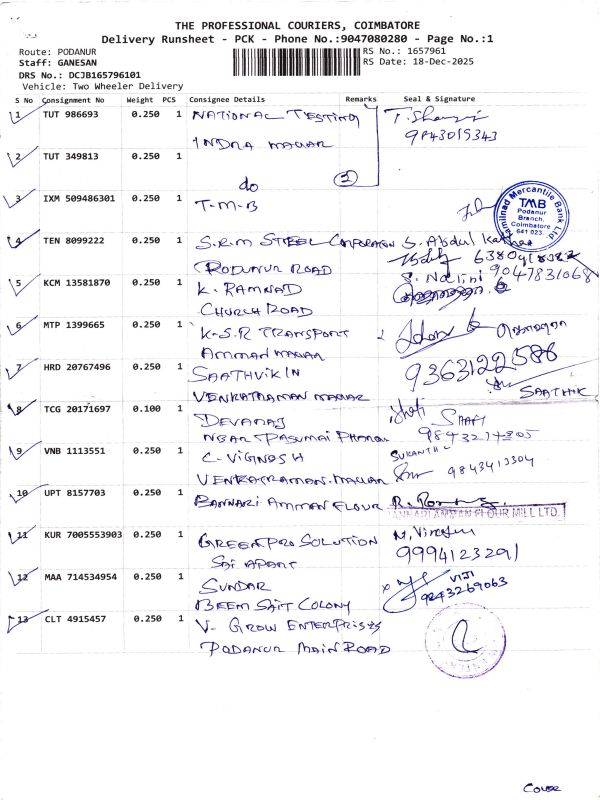 THE PROFESSIONAL COURIERS, COIMBATORE
Delivery Runsheet - PCK - Phone No.:9047080280 - Page No.:1
Route: PODANUR
RS No.: 1657961
Staff: GANESAN
RS Date: 18-Dec-2025
DRS No.: DCJB165796101
Vehicle: Two Wheeler Delivery
S No Consignment No Weight PCS Consignee Details Remarks Seal & Signature
1 TUT 986693 0.250 1 NATIONAL TESTING
9843015343
INDRA NAGAR
2 TUT 349813 0.250 1
do 2
3 IXM 509486301 0.250 1 T.M.B
Tamilnad Mercantile Bank Ltd
TMB
Podanur
Branch,
Coimbatore
641 023.
4 TEN 8099222 0.250 1 S.R.M STEEL CORPORATION S. Abdul
PODUNUR ROAD
5 KCM 13581870 0.250 1 K. RAMNAD S. Nalini 9047831068
CHURCH ROAD
6 MTP 1399665 0.250 1 K.S.R TRANSPORT
AMMAN NAGAR
7 HRD 20767496 0.250 1 SAATHVIK IN 9363122586
VENKATRAMAN NAGAR SAATHIK
8 TCG 20171697 0.100 1 DEVARAJ STAFF
NEAR PASUMAI
9 VNB 1113551 0.250 1 C. VIGNESH SUKANTH
VENKATRAMAN. NAGAR 9843413304
10 UPT 8157703 0.250 1 BANNARI AMMAN FLOUR
BANNARI AMMAN FLOUR MILL LTD.
11 KUR 7005553903 0.250 1 GREENPRO SOLUTION
SAI APART 9994123291
12 MAA 714534954 0.250 1 SUNDAR VIJI
9843269063
BEEM COLONY
13 CLT 4915457 0.250 1 V- GROW ENTERPRISES
PODANUR MAIN ROAD
COVER